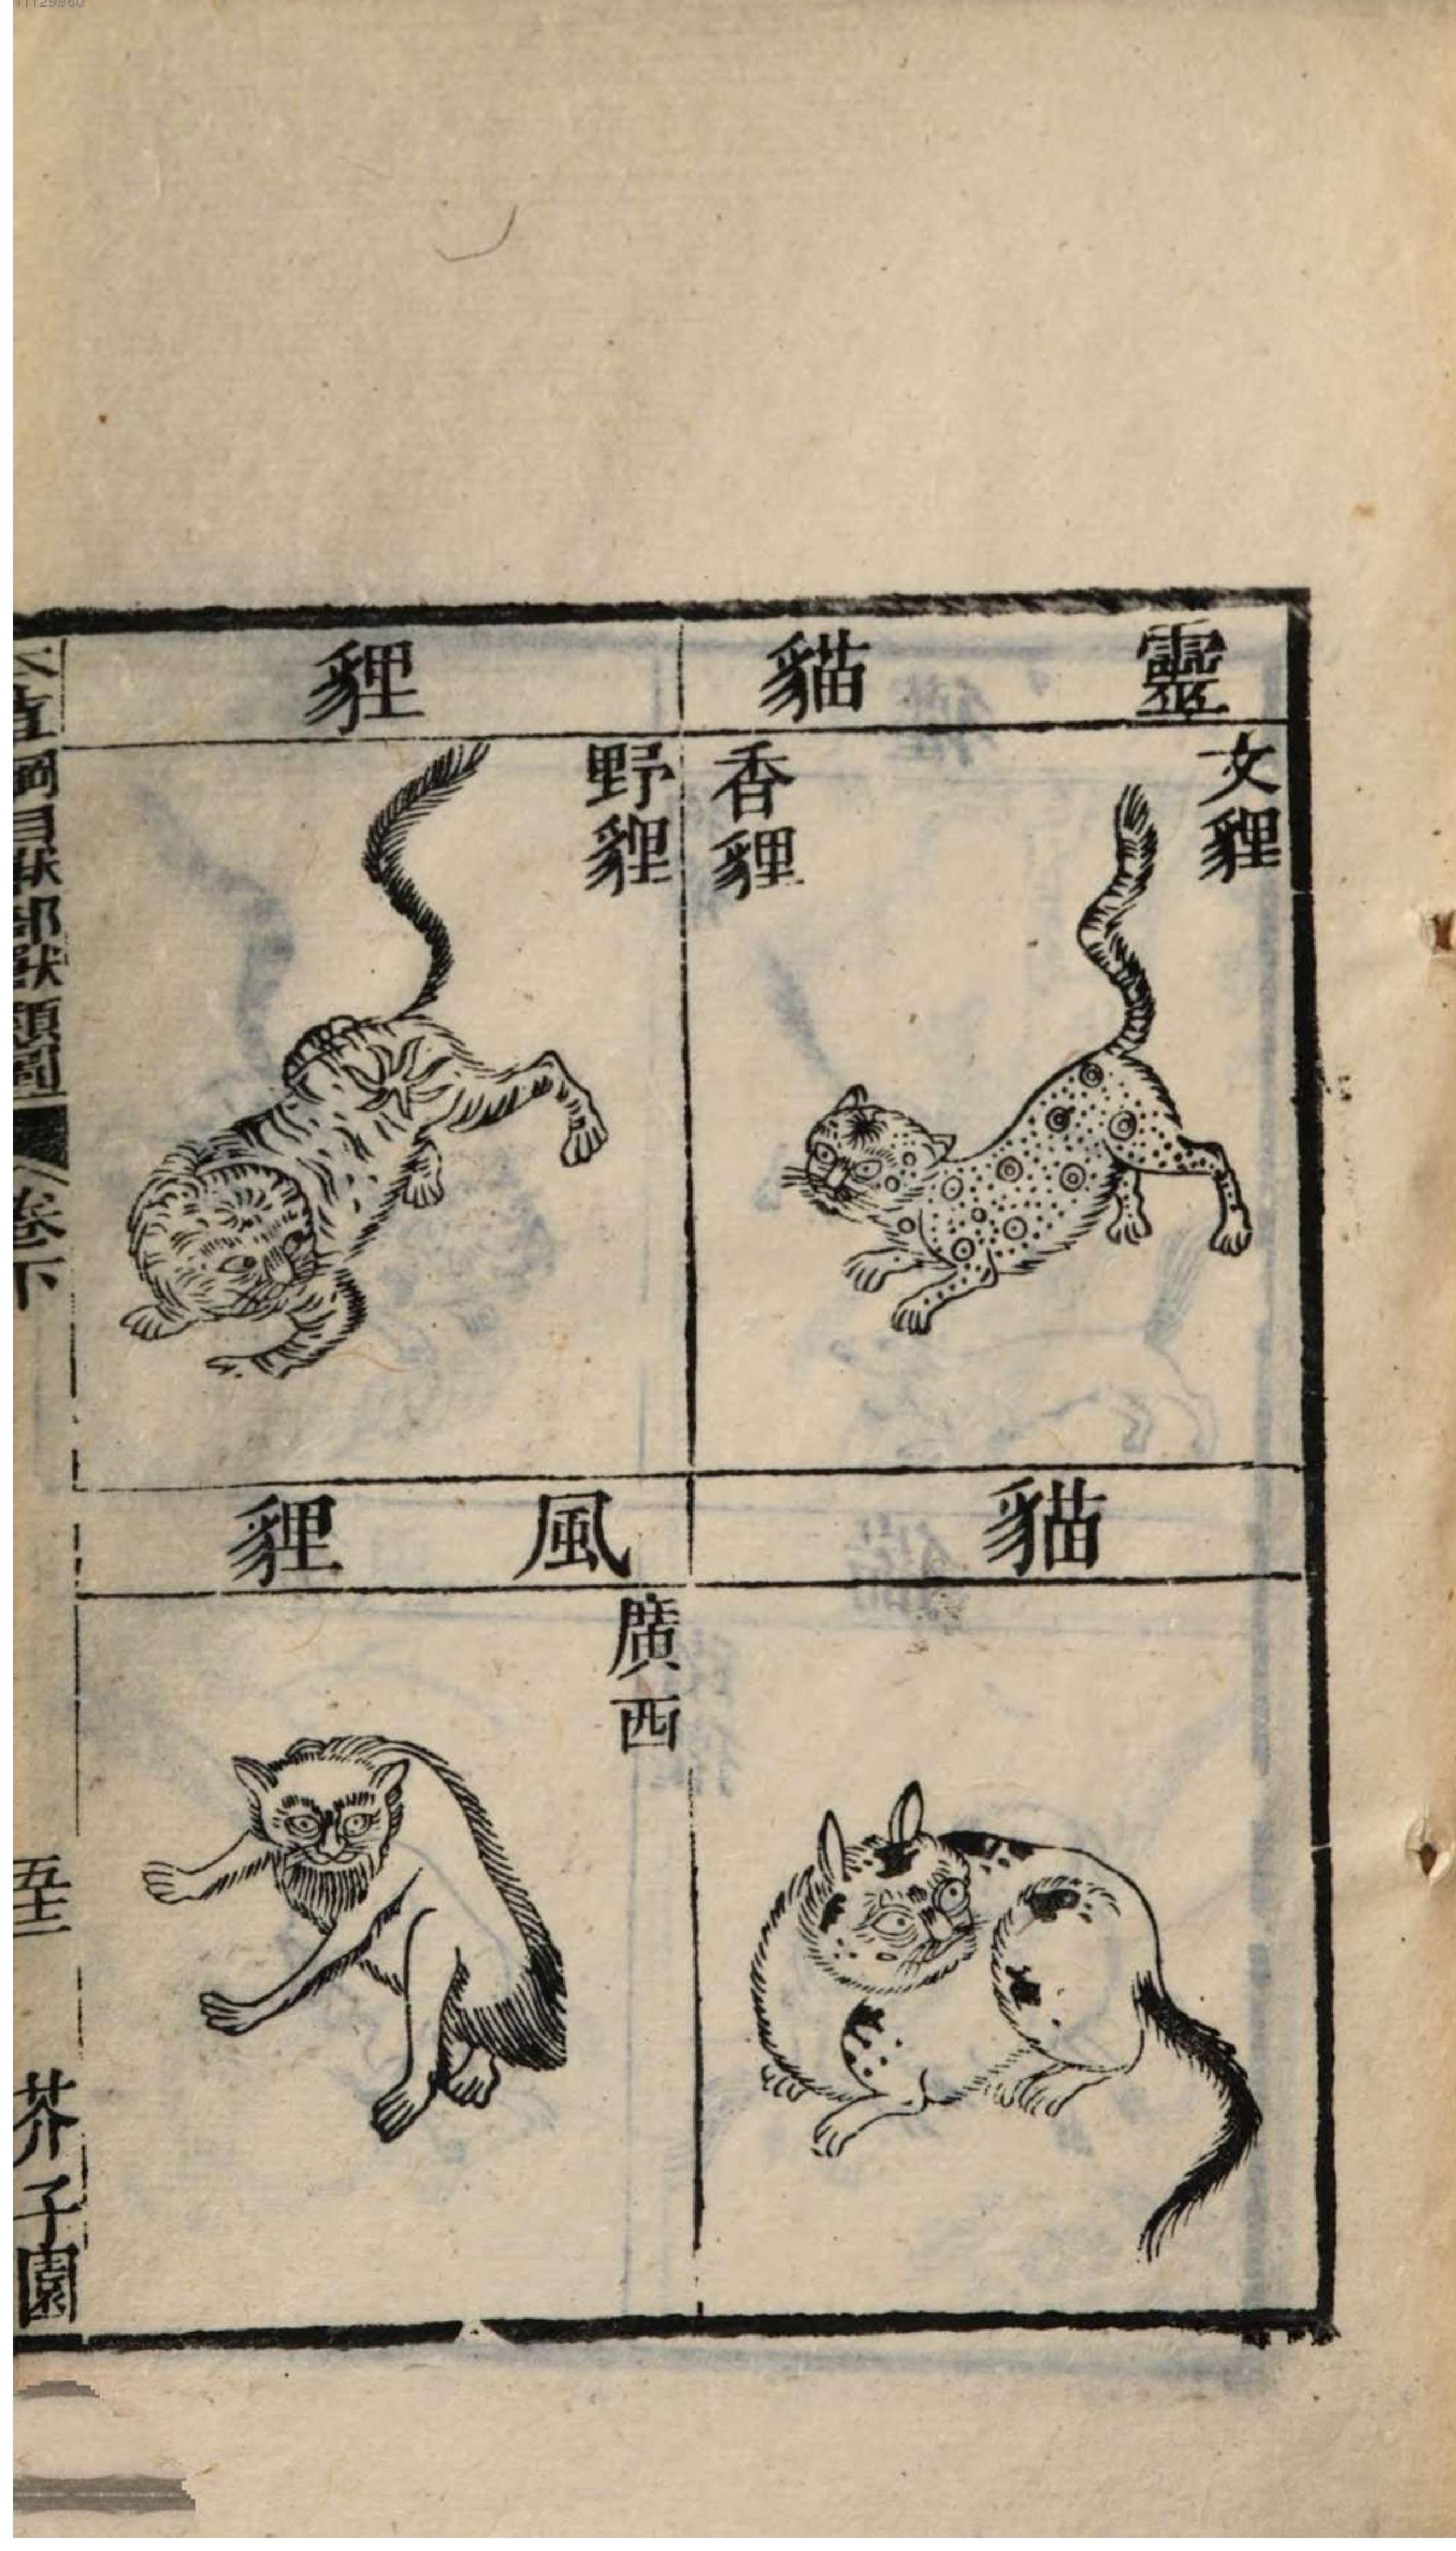 靈貓
文貍
香貍
貍
野貍
貓
風貍
廣西
本草綱目獸部獸類圖
卷下
芥子園